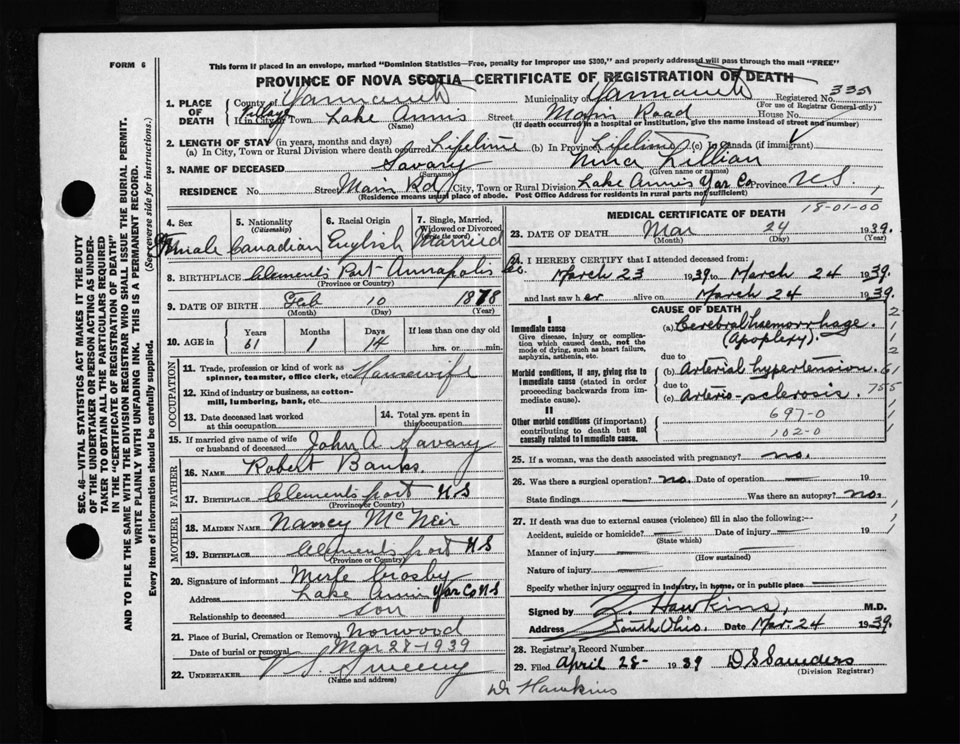 FORM 6
This form if placed in an envelope, marked "Dominion Statistics—Free, penalty for improper use $300," and properly addressed will pass through the mail "FREE"
PROVINCE OF NOVA SCOTIA—CERTIFICATE OF REGISTRATION OF DEATH
1. PLACE OF DEATH
County of Yarmouth Municipality of Yarmouth Registered No. 335
(For use of Registrar General only)
Village
If in City or Town Lake Annis Street Main Road House No.
(Name) (If death occurred in a hospital or institution, give the name instead of street and number)
2. LENGTH OF STAY (in years, months and days)
(a) In City, Town or Rural Division where death occurred Lifetime (b) In Province Lifetime (c) In Canada (if immigrant)
3. NAME OF DECEASED Savary Nina Lillian
(Surname) (Given name or names)
RESIDENCE No. Street Main Rd City, Town or Rural Division Lake Annis Yar Co Province N.S.
(Residence means usual place of abode. Post Office Address for residents in rural parts not sufficient)
4. Sex Female
5. Nationality (Citizenship) Canadian
6. Racial Origin English
7. Single, Married, Widowed or Divorced (write the word) Married
8. BIRTHPLACE Clements Port-Annapolis Co.
(Province or Country)
9. DATE OF BIRTH Feb 10 1878
(Month) (Day) (Year)
10. AGE in Years Months Days If less than one day old
61 1 14 hrs. or min.
OCCUPATION
11. Trade, profession or kind of work as spinner, teamster, office clerk, etc. Housewife
12. Kind of industry or business, as cotton-mill, lumbering, bank, etc.
13. Date deceased last worked at this occupation
14. Total yrs. spent in this occupation
15. If married give name of wife or husband of deceased John A Savary
FATHER
16. NAME Robert Banks.
17. BIRTHPLACE Clementsport N S
(Province or Country)
MOTHER
18. MAIDEN NAME Nancy McNeir
19. BIRTHPLACE Clementsport N S
(Province or Country)
20. Signature of informant Merle Crosby
Address Lake Annis Yar Co N S
Relationship to deceased son
21. Place of Burial, Cremation or Removal Norwood
Date of burial or removal Mar 27-1939
22. UNDERTAKER V S Sweeny
(Name and address)
MEDICAL CERTIFICATE OF DEATH
18-01-00
23. DATE OF DEATH Mar 24 1939.
(Month) (Day) (Year)
24. I HEREBY CERTIFY that I attended deceased from:
March 23 1939 to March 24 1939.
and last saw her alive on March 24 1939.
CAUSE OF DEATH
I
Immediate cause (a) Cerebral haemorrhage.
Give disease, injury or complication which caused death, not the mode of dying, such as heart failure, asphyxia, asthenia, etc.
(Apoplexy).
due to
Morbid conditions, if any, giving rise to immediate cause (stated in order proceeding backwards from immediate cause).
(b) Arterial hypertension.
due to
(c) Arterio-sclerosis. 755
II
Other morbid conditions (if important) contributing to death but not causally related to immediate cause.
697-0
102-0
25. If a woman, was the death associated with pregnancy? no.
26. Was there a surgical operation? no. Date of operation 19
State findings Was there an autopsy? no.
27. If death was due to external causes (violence) fill in also the following:—
Accident, suicide or homicide? Date of injury 19
(State which)
Manner of injury
(How sustained)
Nature of injury
Specify whether injury occurred in industry, in home, or in public place
Signed by Z. Hawkins, M.D.
Address South Ohio. Date Mar. 24 1939.
28. Registrar's Record Number
29. Filed April 28- 1939 D S Saunders
(Division Registrar)
Dr Hawkins
SEC. 46—VITAL STATISTICS ACT MAKES IT THE DUTY OF THE UNDERTAKER OR PERSON ACTING AS UNDERTAKER TO OBTAIN ALL THE PARTICULARS REQUIRED IN THE "CERTIFICATE OF REGISTRATION OF DEATH"
AND TO FILE THE SAME WITH THE DIVISION REGISTRAR WHO SHALL ISSUE THE BURIAL PERMIT.
WRITE PLAINLY WITH UNFADING INK. THIS IS A PERMANENT RECORD.
Every item of information should be carefully supplied. (See reverse side for instructions.)